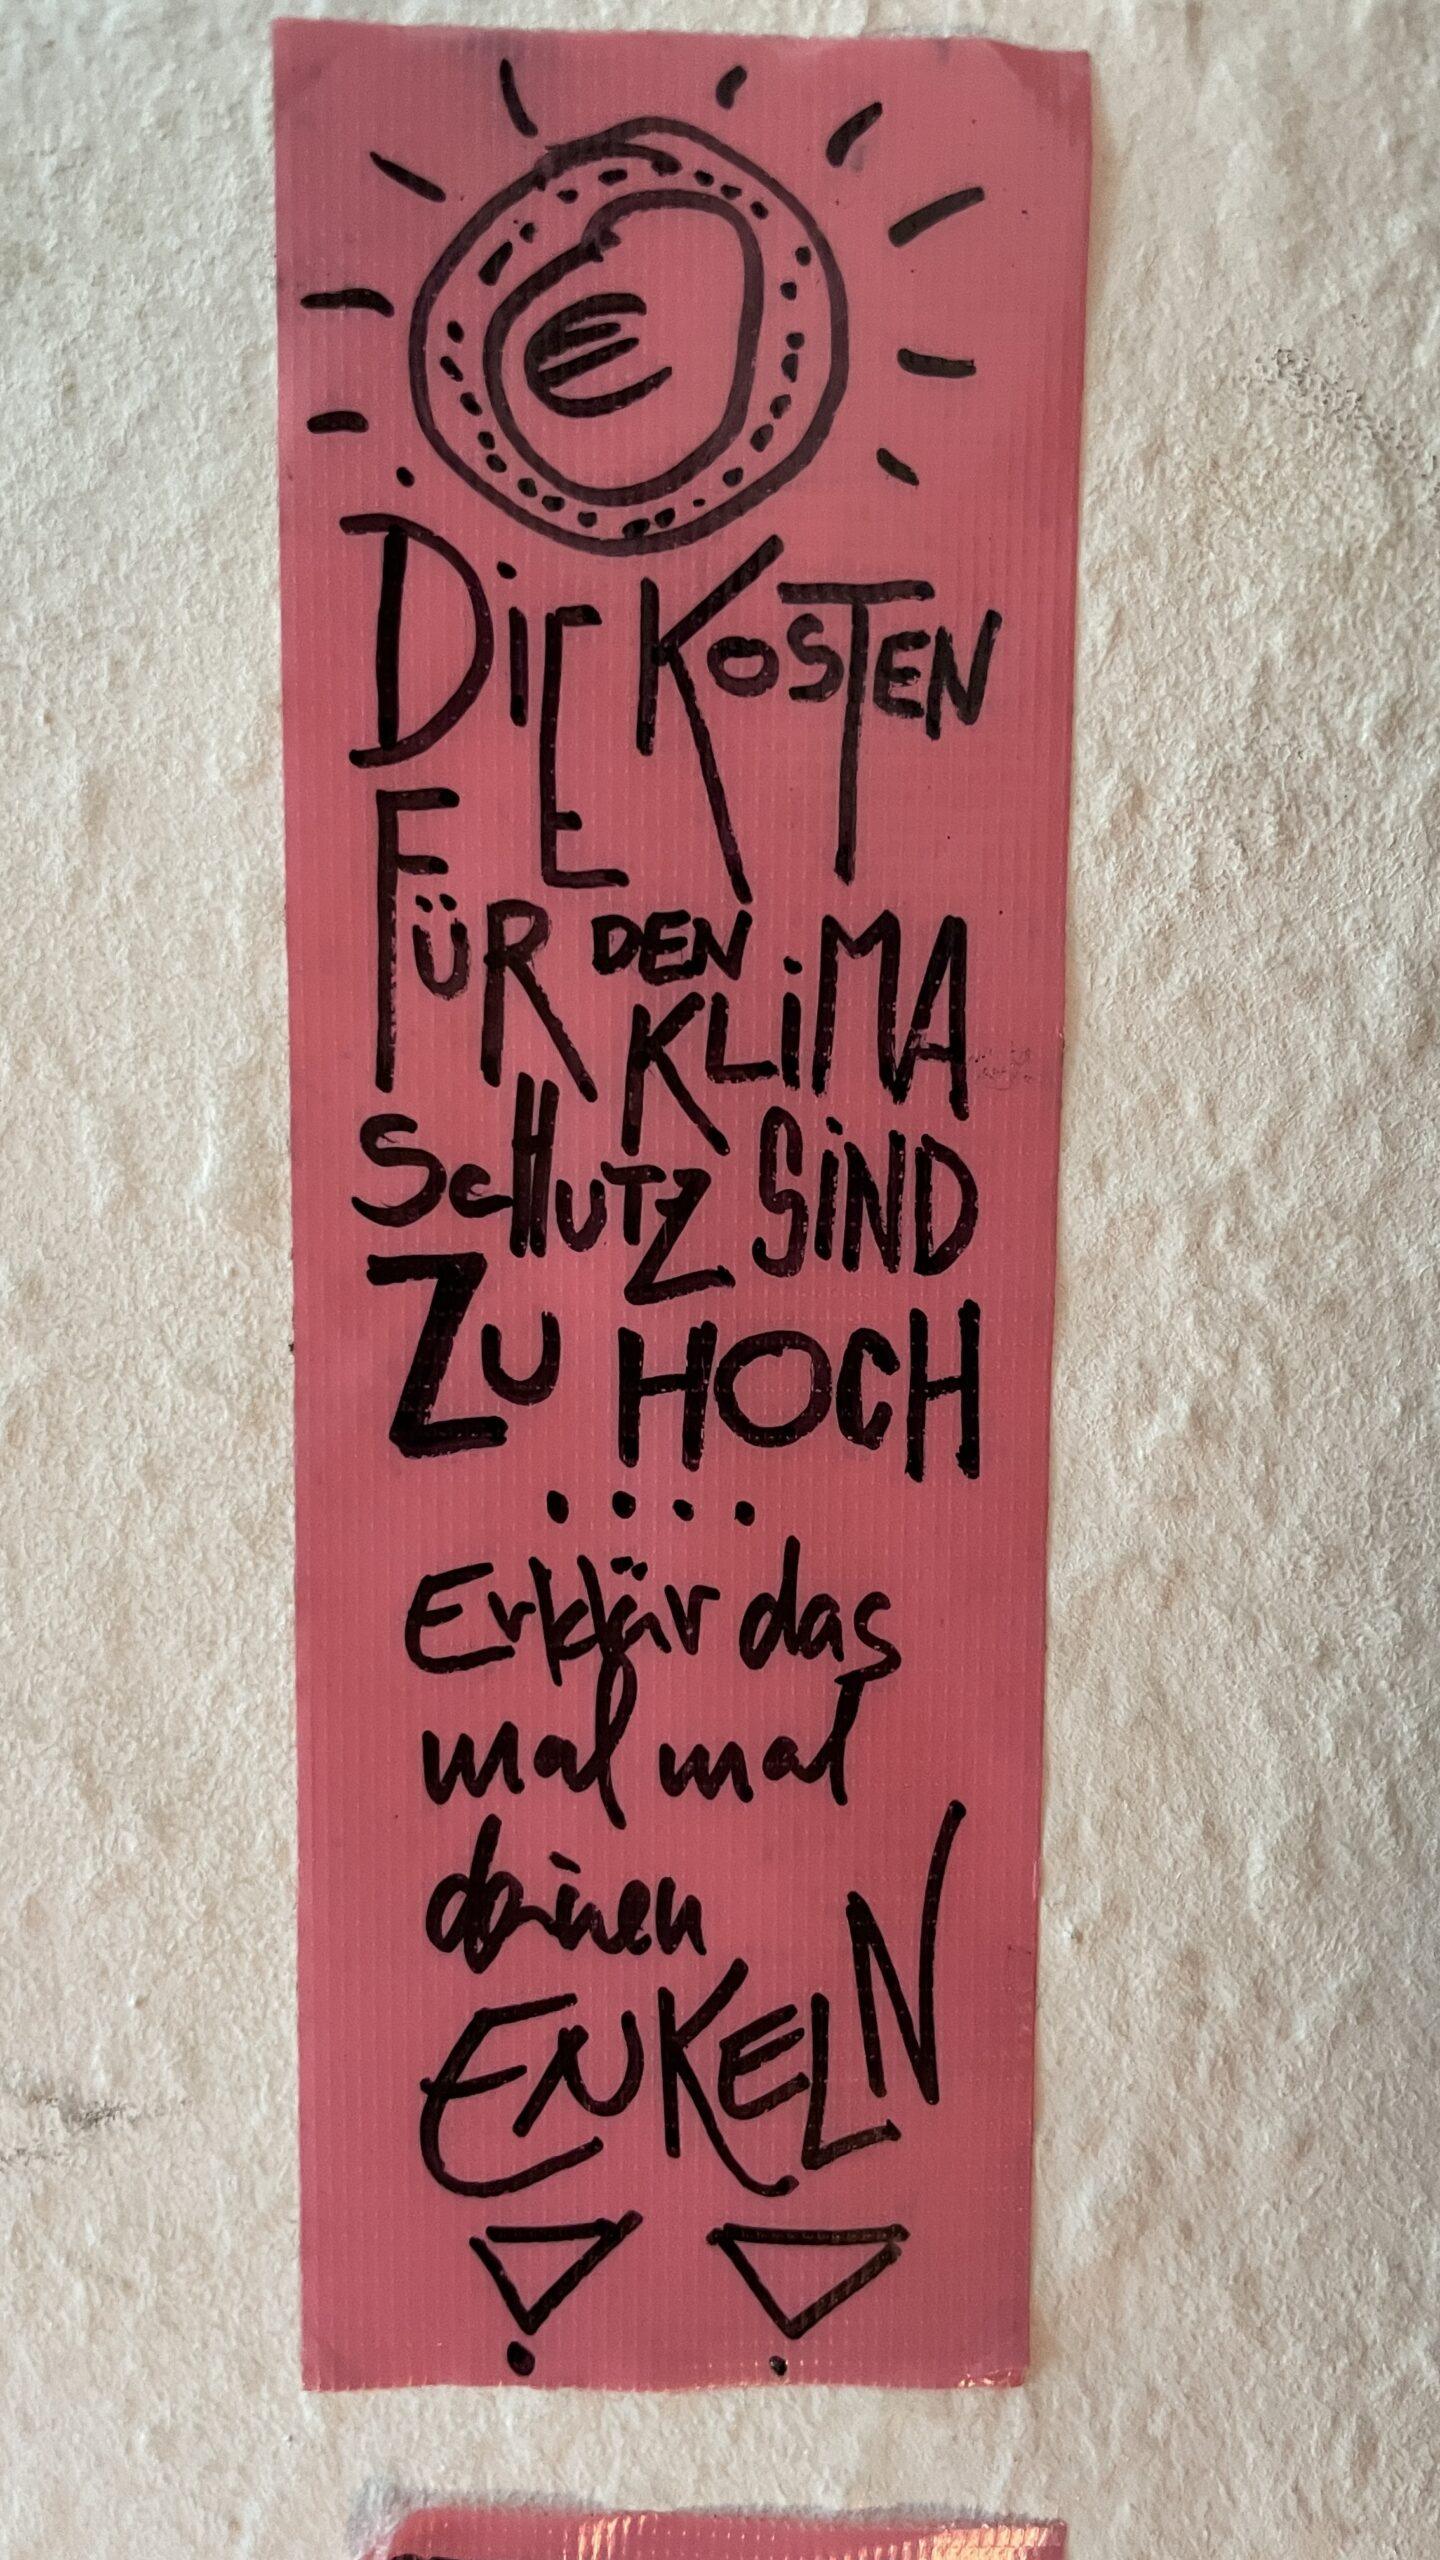 €
DiE KOSTEN
FÜR DEN
KLiMA
SCHUTZ SiND
ZU HOCH
....
Erklär das
mal mal
deinen
ENKELN
!!